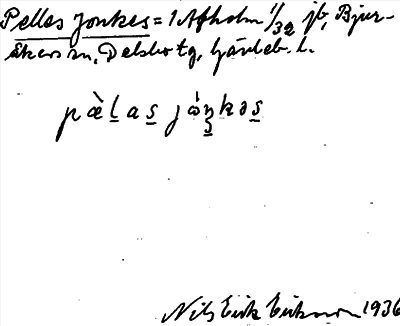 Pelles Jonkes = 1 Afholm 1/32 jb, Bjur-
åkers sn, Delsbo tg, Gävleb. l.
pæ̀l̲as̲ jὼŋ̲kəs̲
Nils Erik Eriksson 1936